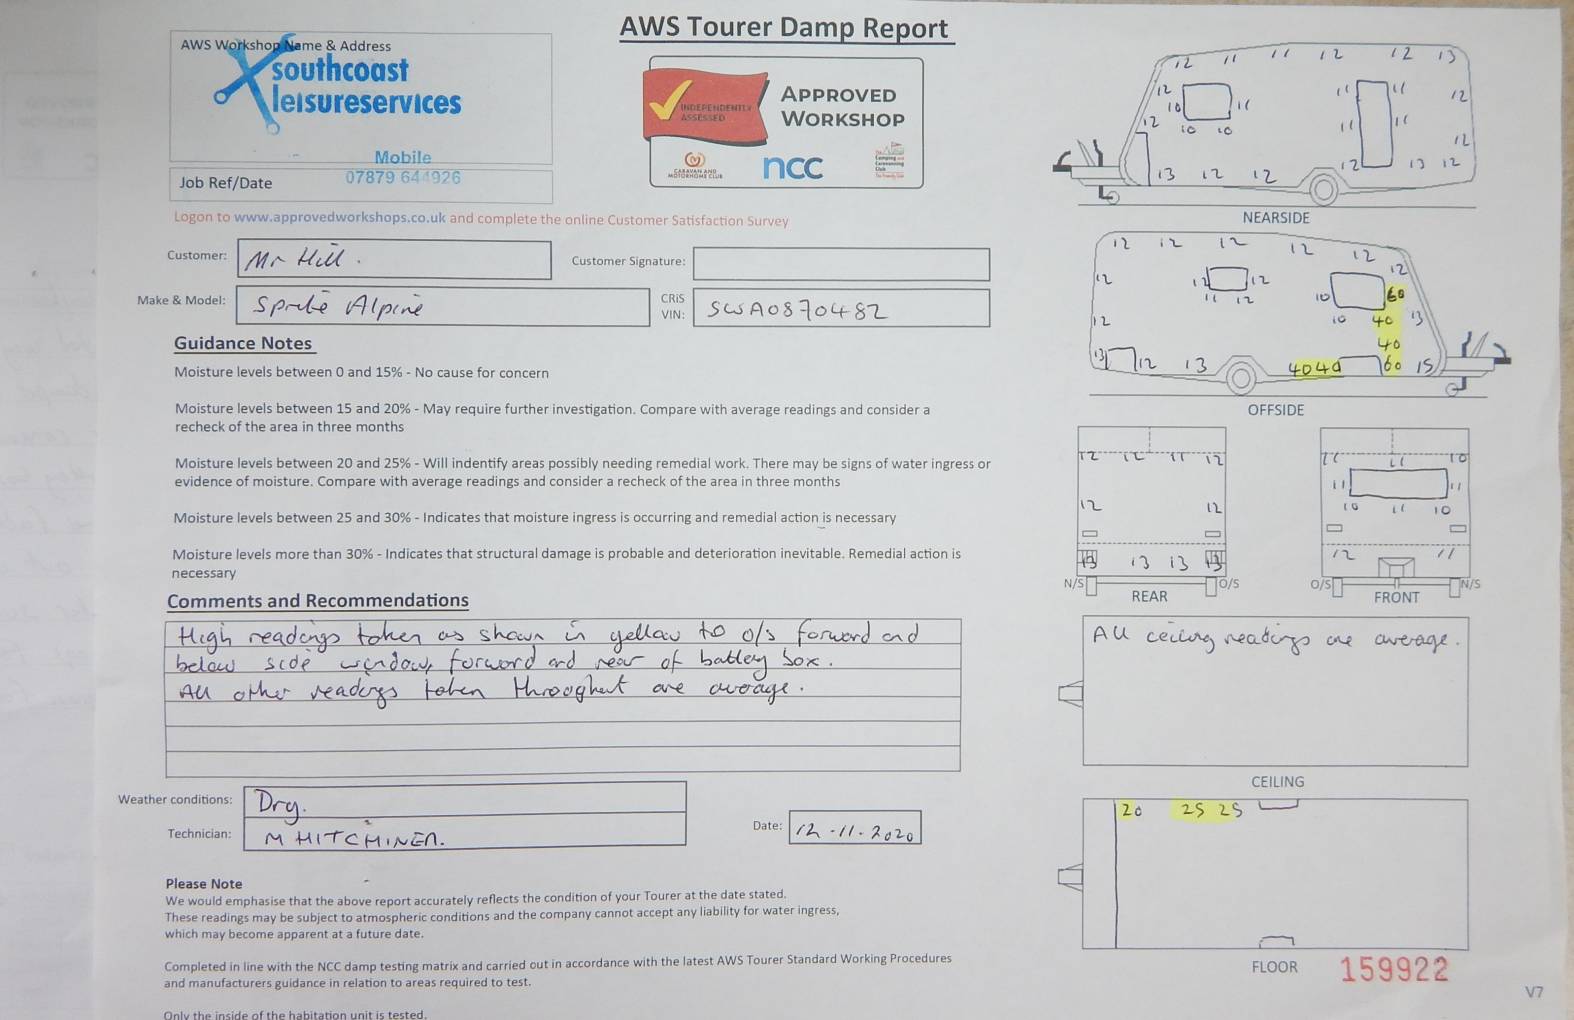 AWS Tourer Damp Report
AWS Workshop Name & Address
southcoast
leisureservices
Mobile
07879 644926
Job Ref/Date
INDEPENDENTLY
ASSESSED
APPROVED
WORKSHOP
CARAVAN AND
MOTORHOME CLUB
ncc
The
Camping and
Caravanning
Club
The Friendly Club
Logon to www.approvedworkshops.co.uk and complete the online Customer Satisfaction Survey
Customer: Mr Hill.
Customer Signature:
Make & Model: Sprite Alpine
CRiS
VIN: SWA0870482
Guidance Notes
Moisture levels between 0 and 15% - No cause for concern
Moisture levels between 15 and 20% - May require further investigation. Compare with average readings and consider a
recheck of the area in three months
Moisture levels between 20 and 25% - Will indentify areas possibly needing remedial work. There may be signs of water ingress or
evidence of moisture. Compare with average readings and consider a recheck of the area in three months
Moisture levels between 25 and 30% - Indicates that moisture ingress is occurring and remedial action is necessary
Moisture levels more than 30% - Indicates that structural damage is probable and deterioration inevitable. Remedial action is
necessary
Comments and Recommendations
High readings taken as shown in yellow to o/s forward and
below side window, forward and rear of battery box.
All other readings taken throughout are average.
Weather conditions: Dry.
Technician: M HITCHINER.
Date: 12-11-2020
Please Note
We would emphasise that the above report accurately reflects the condition of your Tourer at the date stated.
These readings may be subject to atmospheric conditions and the company cannot accept any liability for water ingress,
which may become apparent at a future date.
Completed in line with the NCC damp testing matrix and carried out in accordance with the latest AWS Tourer Standard Working Procedures
and manufacturers guidance in relation to areas required to test.
Only the inside of the habitation unit is tested.
12 11 11 12 12 13
12 11 11 12
10 11
12 10 10 11 11 12
13 12 12 12 13 12
NEARSIDE
12 12 12 12 12 12
12 12 12 60
11 12 10
12 10 40 13
40
13 12 13 40 40 60 15
OFFSIDE
12 12 11 12
12 12
13 13 13 13
N/S O/S
REAR
11 11 10
11 11
10 11 10
12 11
O/S N/S
FRONT
All ceiling readings are average.
CEILING
20 25 25
FLOOR
159922
V7